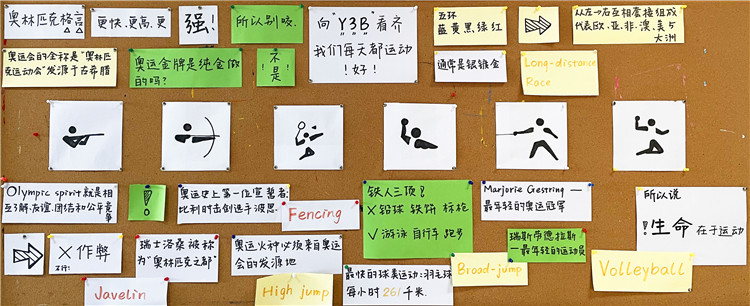 奥林匹克格言
更快.更高.更
强!
所以别咬.
向"Y3B"看齐
我们每天都运动
!好!
五环
蓝黄黑绿红
从左→右互相套接组成
代表欧.亚.非.澳.美5
大洲
奥运会的全称是"奥林匹
克运动会"发源于古希腊
奥运金牌是纯金做
的吗?
不
!是!
通常是银镀金
Long-distance
Race
Olympic spirit就是相
互了解.友谊.团结和公平竞
争
!
奥运史上第一位宣誓者:
比利时击剑选手波恩.
Fencing
铁人三项?
×铅球 铁饼 标枪
√游泳 自行车 跑步
Marjorie Gestring—
最年轻的奥运冠军
所以说
!生命在于运动
×作弊
不行:
瑞士洛桑被称
为"奥林匹克之都"
奥运火种必须来自奥运
会的发源地
瑞斯蒂德拉斯
—最年轻的运动员
Javelin
High jump
最快的球类运动:羽毛球
每小时261千米.
Broad-jump
Volleyball